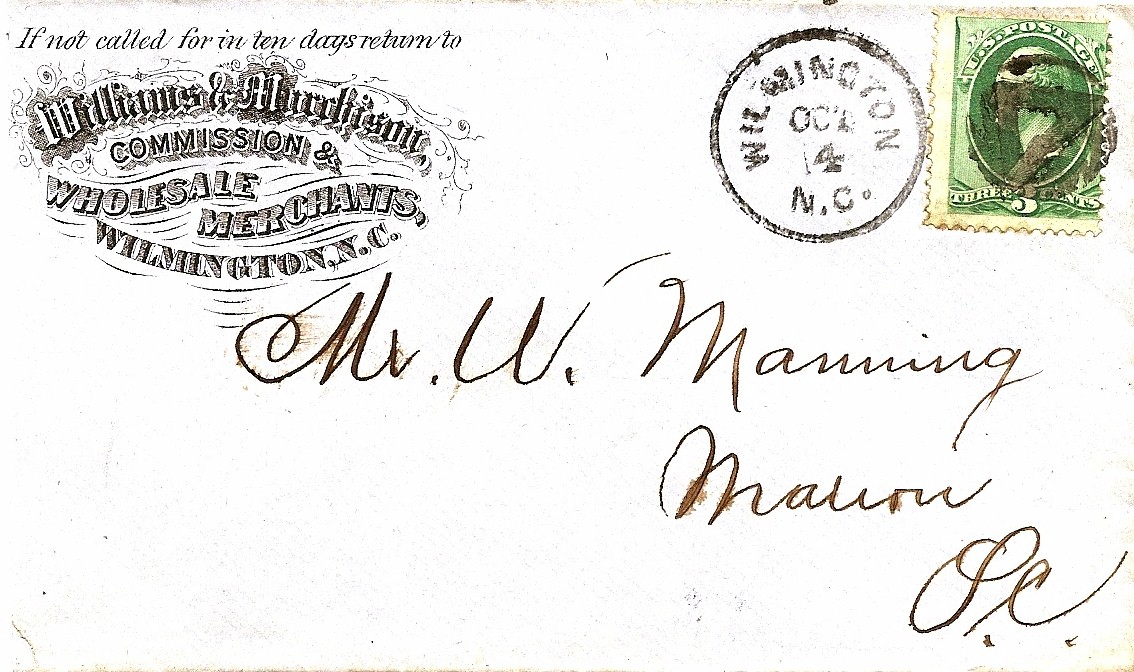 If not called for in ten days return to
Williams & Murchison,
COMMISSION &
WHOLESALE
MERCHANTS,
WILMINGTON, N.C.
WILMINGTON
OCT
14
N.C.
U.S. POSTAGE
THREE 3 CENTS
Mr. W. Manning
Marion
S.C.